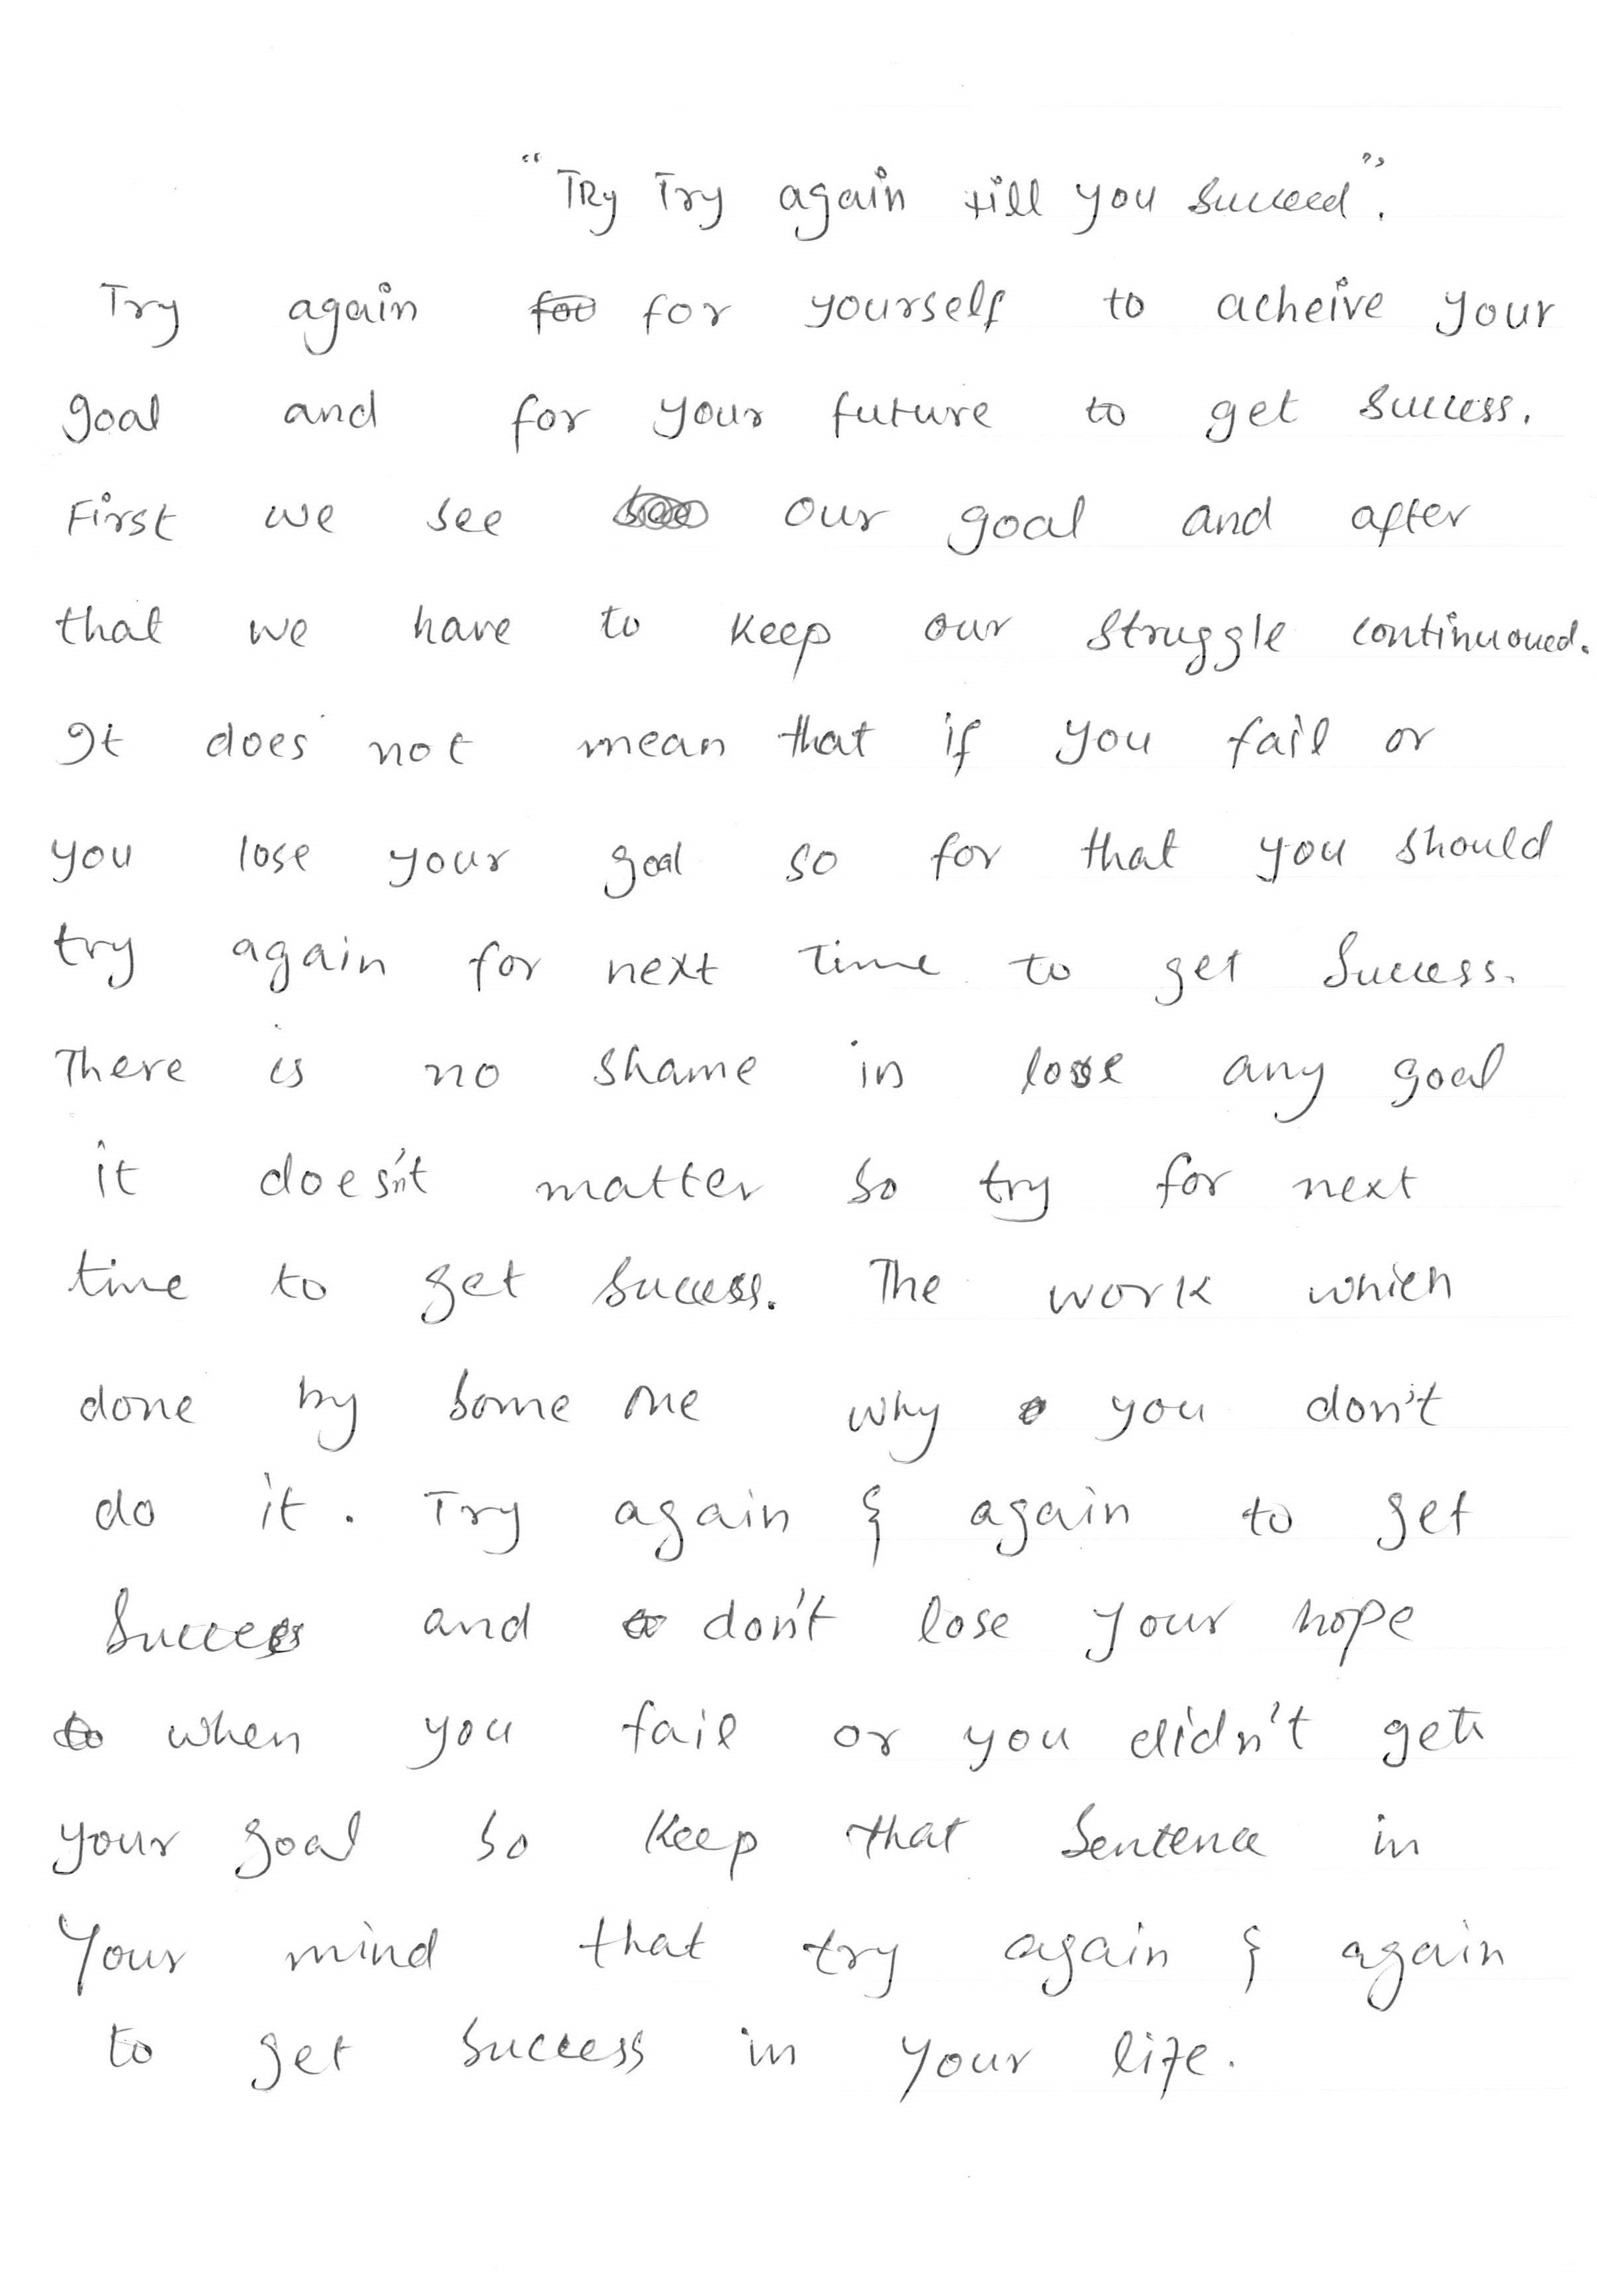 "Try Try again till you succeed".
Try again for for yourself to acheive your
goal and for your future to get success.
First we see our goal and after
that we have to keep our struggle continuoued.
It does not mean that if you fail or
you lose your goal so for that you should
try again for next time to get success.
There is no shame in lose any goal
it does'nt matter so try for next
time to get success. The work which
done by some one why you don't
do it. Try again & again to get
success and don't lose your hope
to when you fail or you didn't get
your goal so keep that sentence in
your mind that try again & again
to get success in your life.